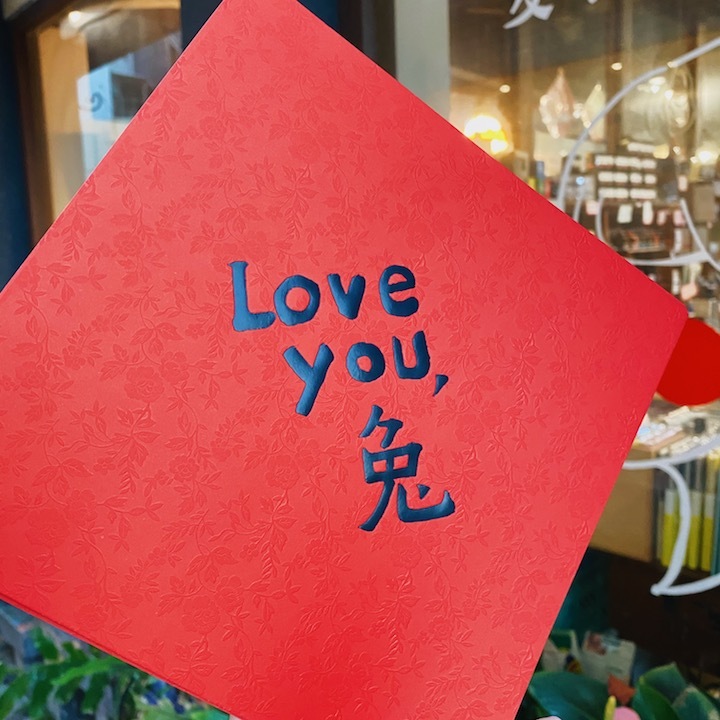 Love
you,
兔